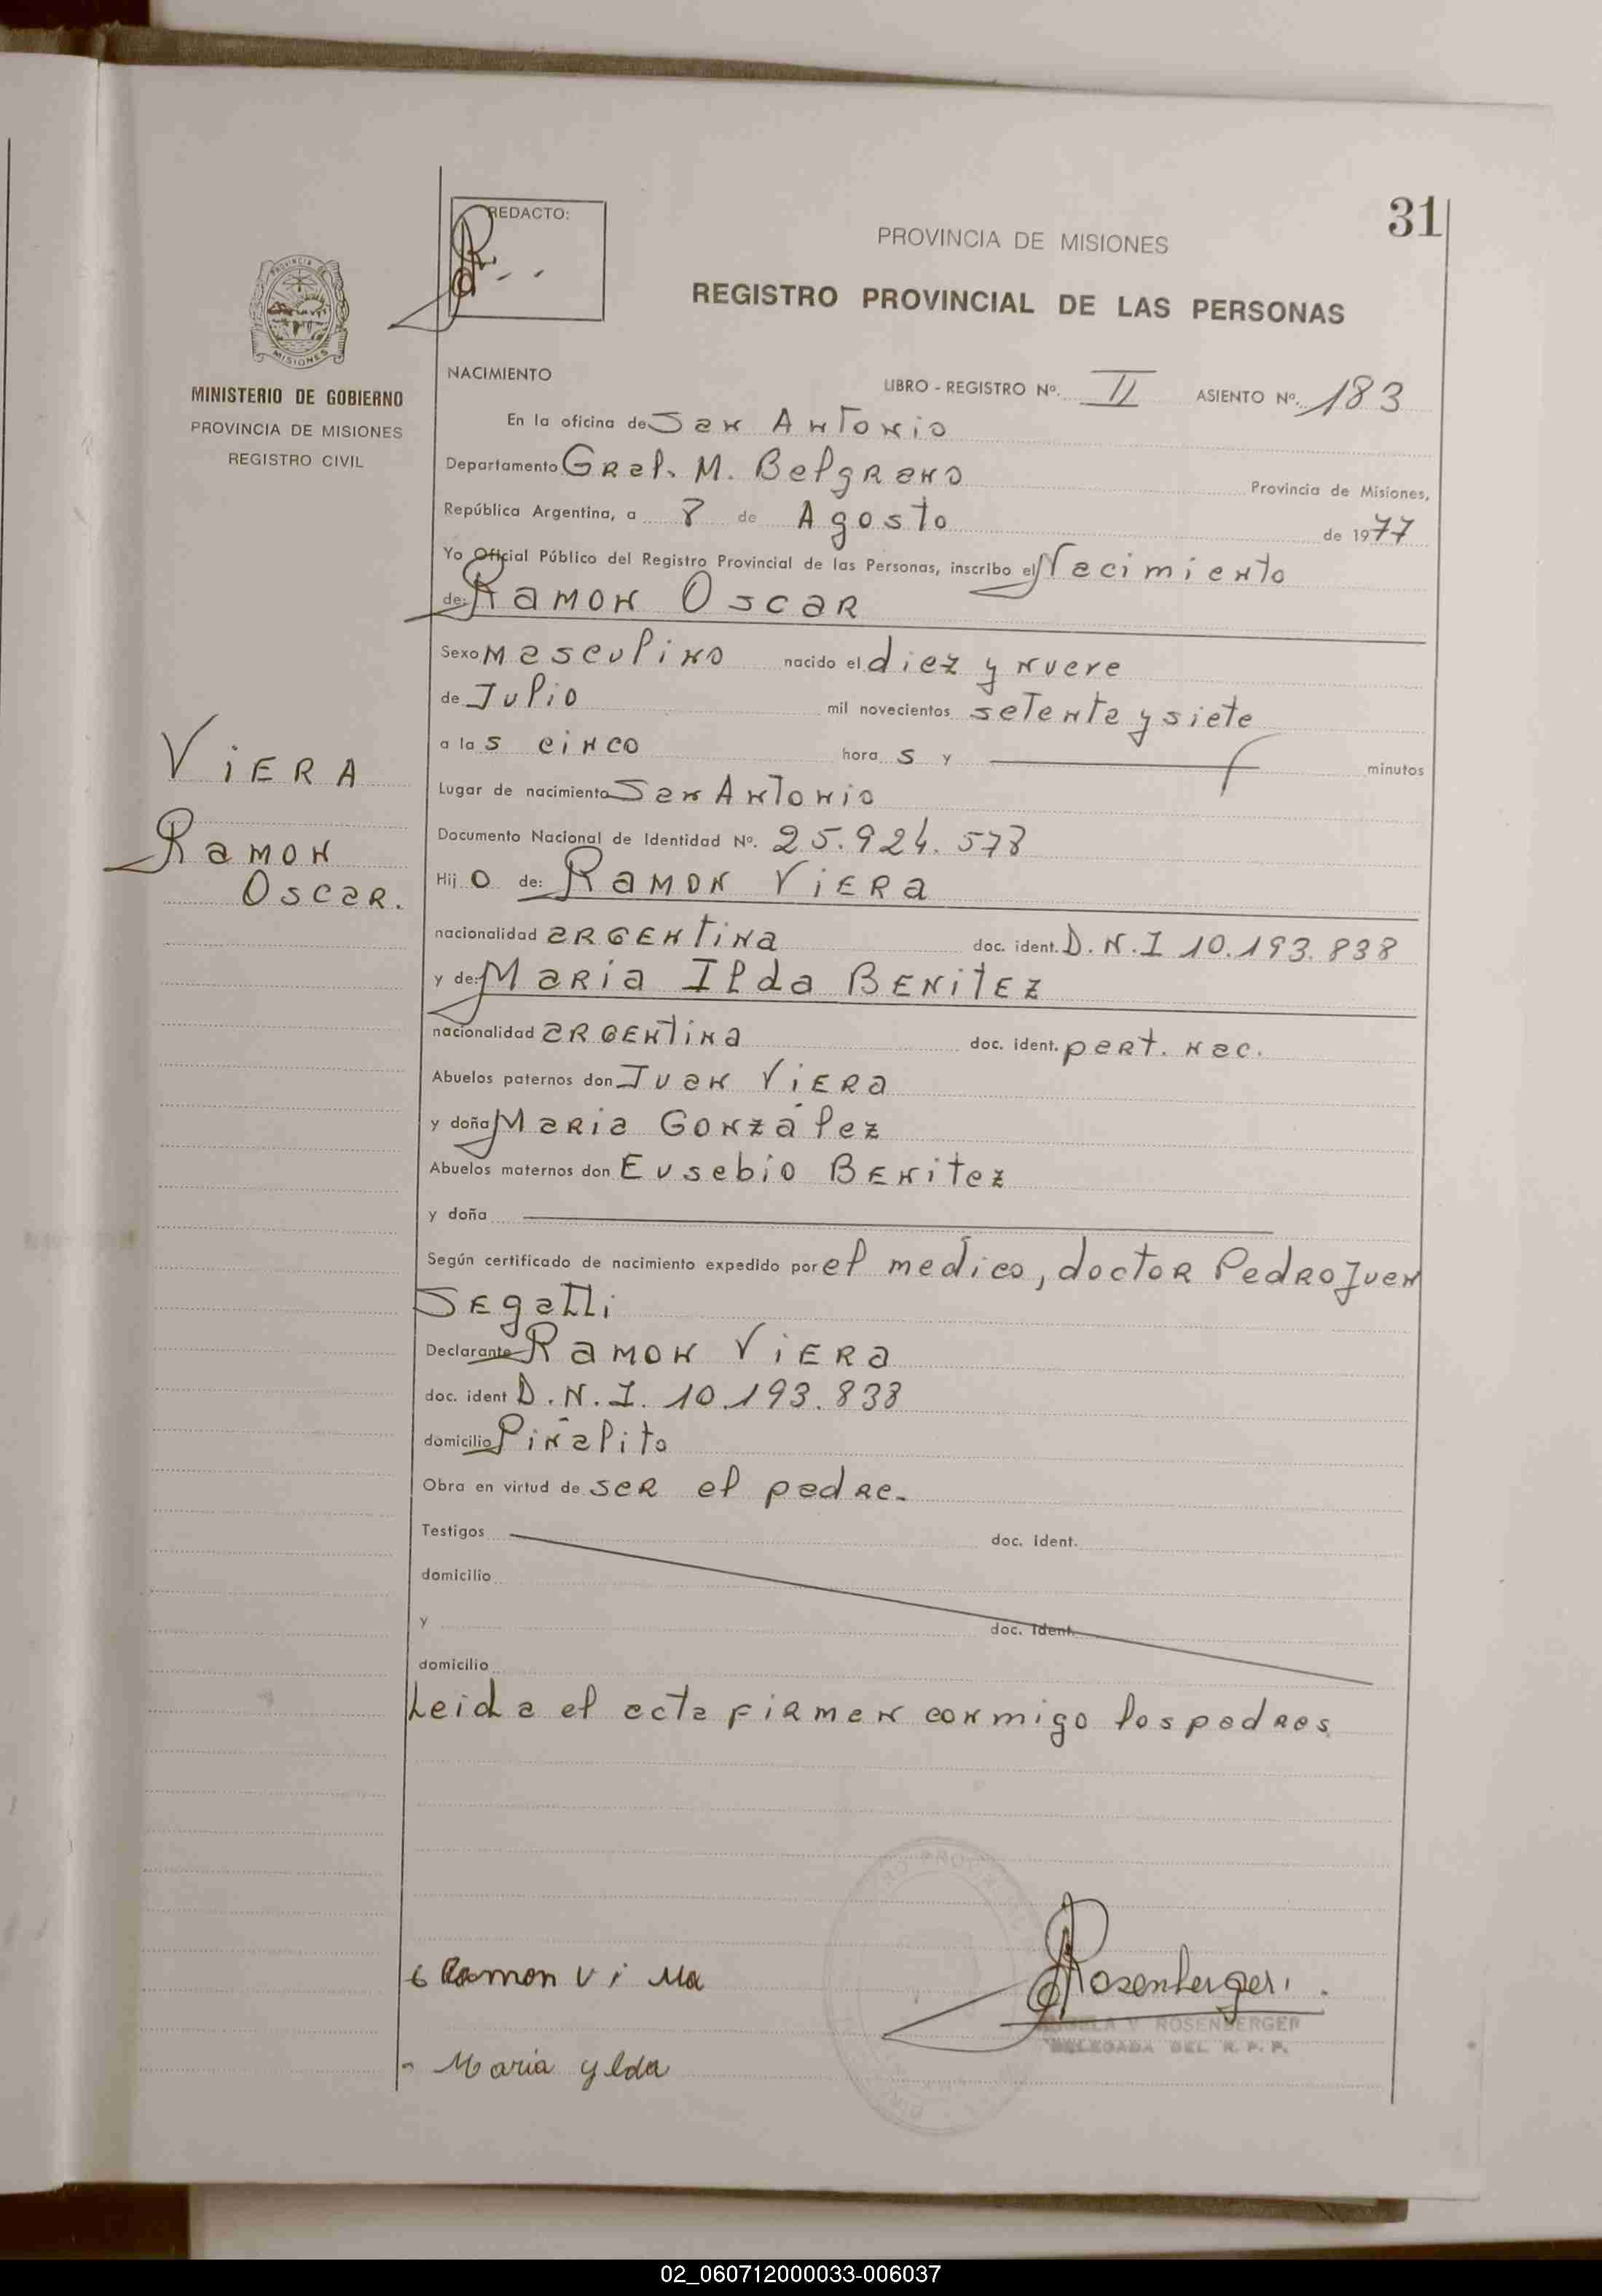 31
REDACTO:
PROVINCIA DE MISIONES
REGISTRO PROVINCIAL DE LAS PERSONAS
PROVINCIA DE
MISIONES
MINISTERIO DE GOBIERNO
PROVINCIA DE MISIONES
REGISTRO CIVIL
NACIMIENTO
LIBRO - REGISTRO Nº. II ASIENTO Nº. 183
En la oficina de San Antonio
Departamento Gral. M. Belgrano Provincia de Misiones,
República Argentina, a 8 de Agosto de 1977
Yo Oficial Público del Registro Provincial de las Personas, inscribo el Nacimiento
de: Ramon Oscar
Sexo masculino nacido el diez y nueve
de Julio mil novecientos setenta y siete
a las cinco horas y minutos
VIERA
Ramon
Oscar.
Lugar de nacimiento San Antonio
Documento Nacional de Identidad Nº. 25.924.578
Hijo de: Ramon Viera
nacionalidad argentina doc. ident. D.N.I 10.193.838
y de: Maria Ilda Benitez
nacionalidad argentina doc. ident. pert. nac.
Abuelos paternos don Juan Viera
y doña Maria González
Abuelos maternos don Eusebio Benitez
y doña
Según certificado de nacimiento expedido por el medico, doctor Pedro Juan
Segatti
Declarante Ramon Viera
doc. ident D.N.I. 10.193.838
domicilio Piñalito
Obra en virtud de ser el padre.
Testigos doc. ident.
domicilio
y doc. ident.
domicilio
Leida el acta firman conmigo los padres
Ramon
Rosenberger.
ANGELA V. ROSENBERGER
DELEGADA DEL R. P. P.
Maria ylda
02_060712000033-006037